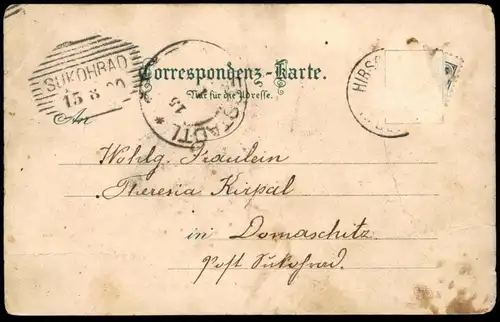 SUKOHRAD
15 8 00
Correspondenz-Karte.
Nur für die Adresse.
An
STADTL
15
HIRS
Wohlg. Fräulein
Theresia Kirpal
in Domaschitz
Post Sukohrad.